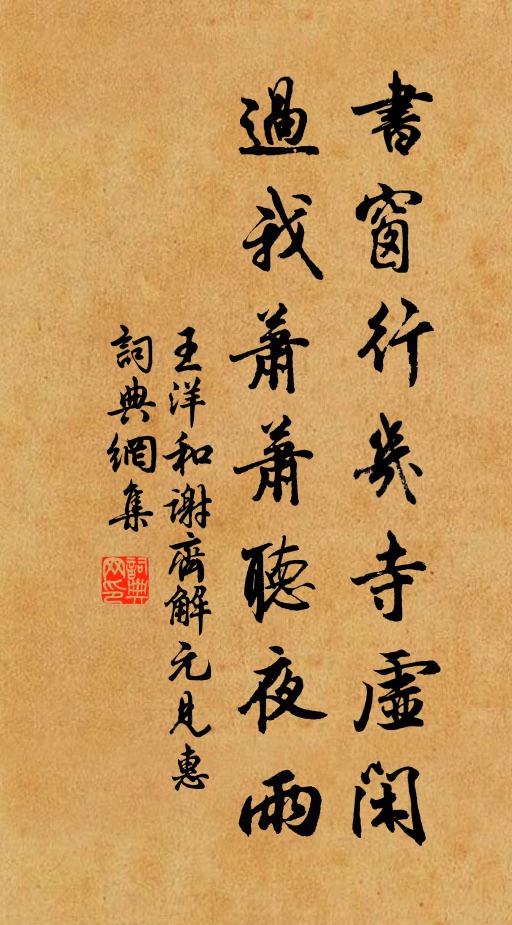 書窗行幾寺虛閑
過我蕭蕭聽夜雨
王洋和谢齊解元見惠
詞典網集
詞典網印